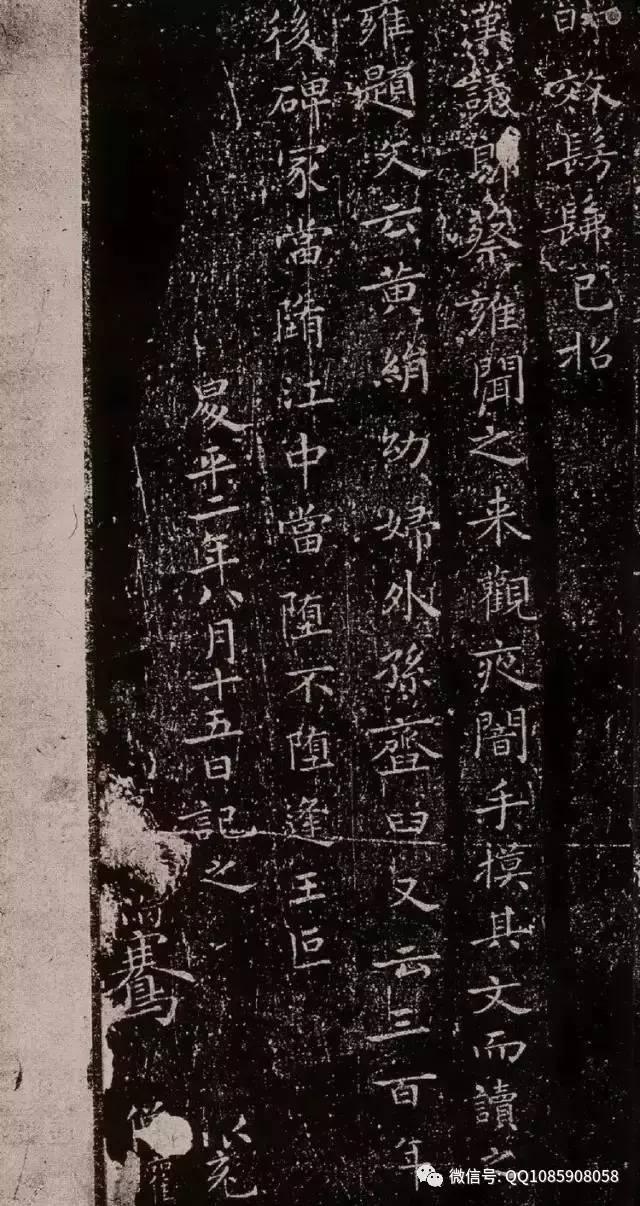 時效髣髴以招
漢議郎蔡雍聞之来觀夜闇手摸其文而讀之
雍題文云黃絹幼婦外孫齏臼又云三百年
後碑冢當墮江中當墮不墮逢王叵
昇平二年八月十五日記之
騫
僧權
以充
微信号: QQ1085908058